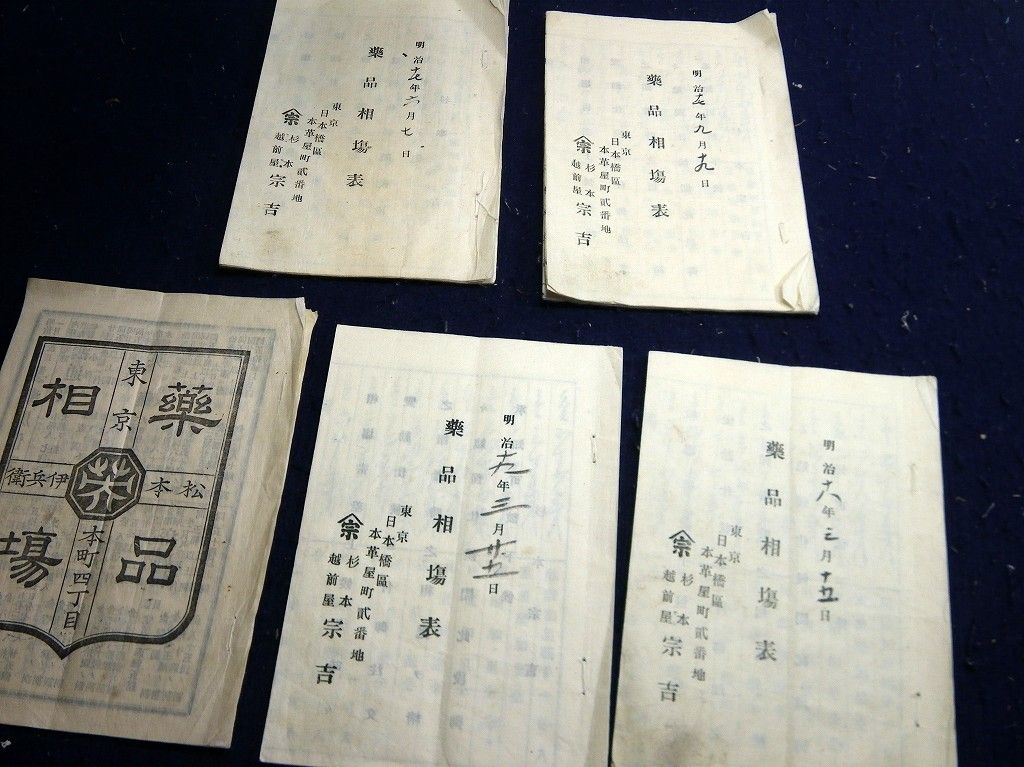 明治十七年六月七日
藥品相場表
東京
日本橋區
本革屋町貳番地
杉本
越前屋
宗吉
宗
明治十七年九月十九日
藥品相場表
東京
日本橋區
本革屋町貳番地
杉本
越前屋
宗吉
宗
藥品
東京
相場
松本伊兵衛
榮
本町四丁目
明治十九年三月廿五日
藥品相場表
東京
日本橋區
本革屋町貳番地
杉本
越前屋
宗吉
宗
明治十八年三月十五日
藥品相場表
東京
日本橋區
本革屋町貳番地
杉本
越前屋
宗吉
宗